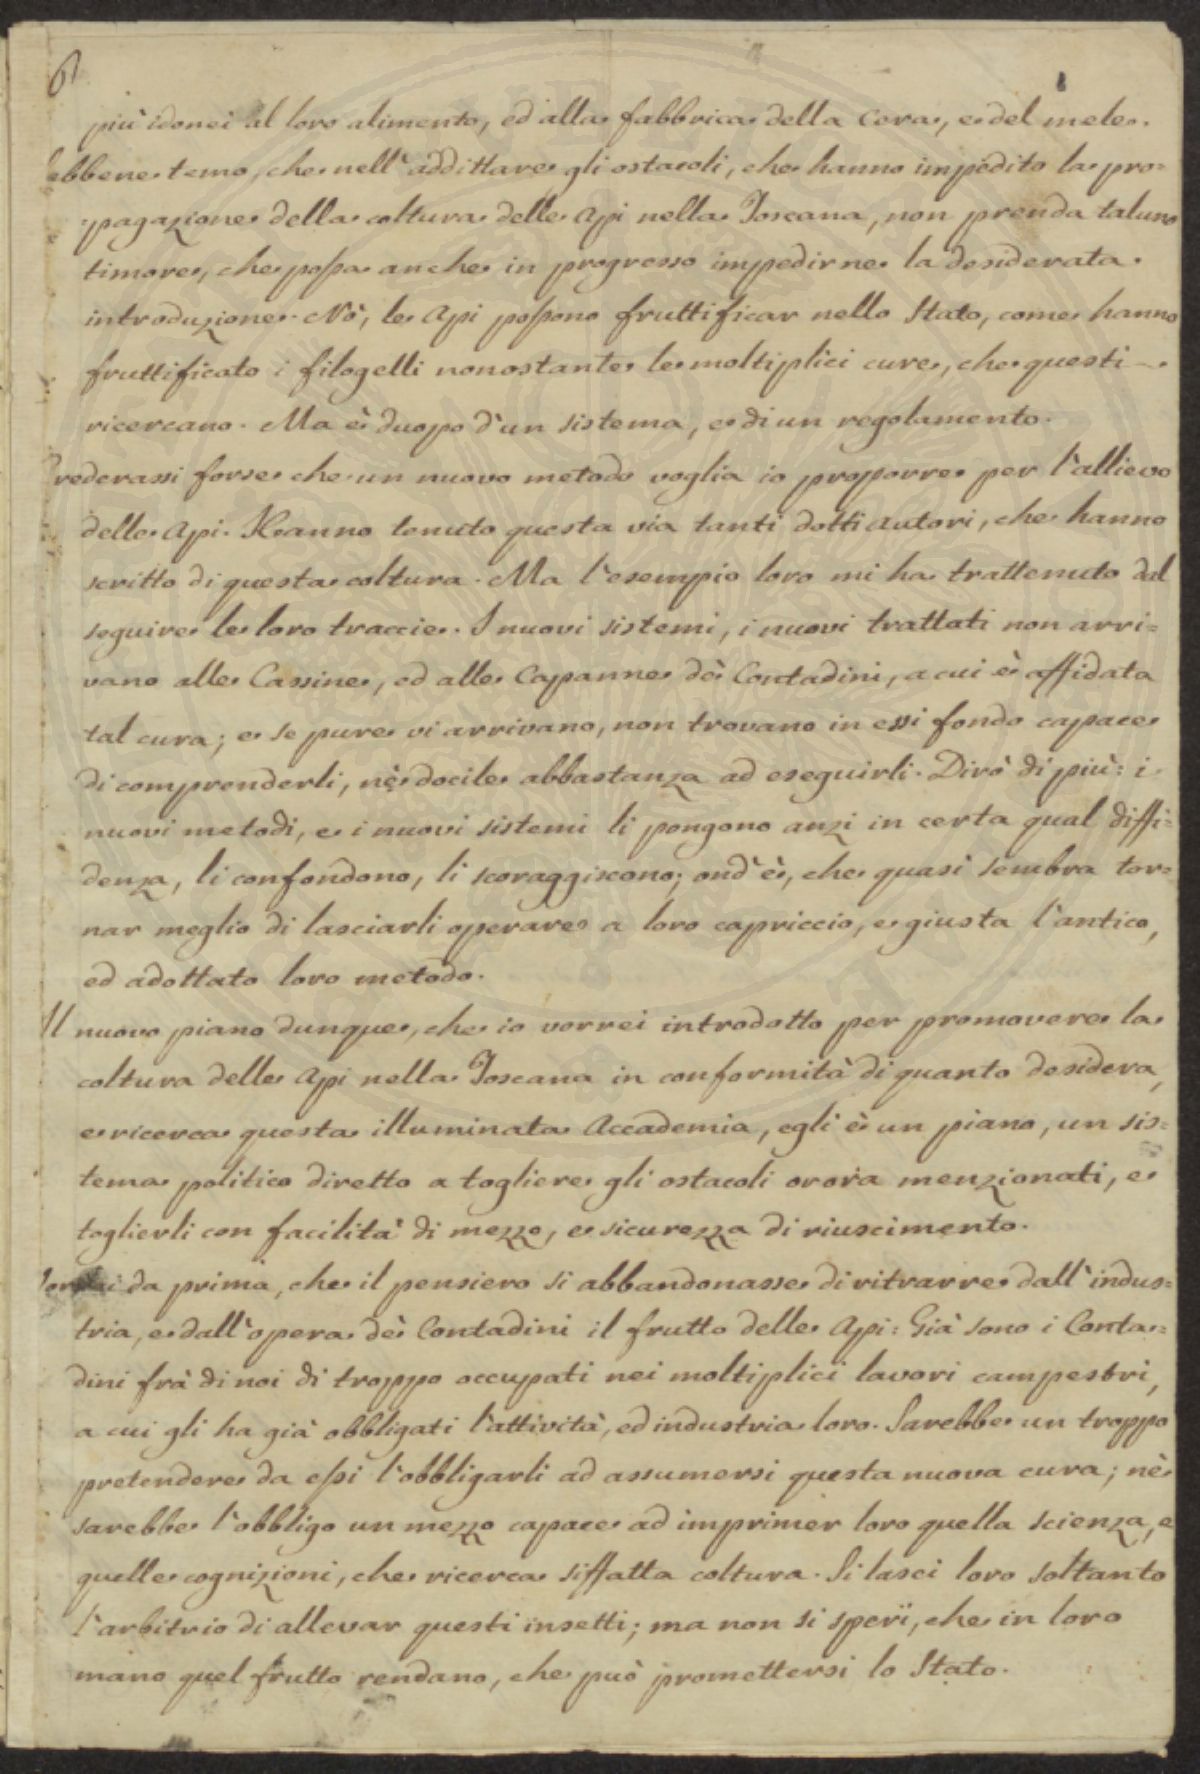 6
più idonei al loro alimento, ed alla fabbrica della Cera, e del mele.
Sebbene temo, che nell'addittare gli ostacoli, che hanno impedito la pro=
pagazione della coltura delle Api nella Toscana, non prenda taluno
timore, che possa anche in progresso impedirne la desiderata
introduzione. Nò, le Api possono fruttificar nello Stato, come hanno
fruttificato i filogelli nonostante le moltiplici cure, che questi
ricercano. Ma è duopo d'un sistema, e di un regolamento.
Crederassi forse che un nuovo metodo voglia io proporre per l'allievo
delle Api. Hanno tenuto questa via tanti dotti autori, che hanno
scritto di questa coltura. Ma l'esempio loro mi ha trattenuto dal
seguire le loro traccie. I nuovi sistemi, i nuovi trattati non arri=
vano alle Cassine, ed alle Capanne de' Contadini, a cui è affidata
tal cura; e se pure vi arrivano, non trovano in essi fondo capace
di comprenderli, nè docile abbastanza ad eseguirli. Dirò di più: i
nuovi metodi, e i nuovi sistemi li pongono anzi in certa qual diffi=
denza, li confondono, li scoraggiscono; ond'è, che quasi sembra tor=
nar meglio di lasciarli operare a loro capriccio, e giusta l'antico,
ed adottato loro metodo.
Il nuovo piano dunque, che io vorrei introdotto per promovere la
coltura delle Api nella Toscana in conformità di quanto desidera,
e ricerca questa illuminata Accademia, egli è un piano, un sis=
tema politico diretto a togliere gli ostacoli orora menzionati, e
toglierli con facilità di mezzo, e sicurezza di riuscimento.
da prima, che il pensiero si abbandonasse di ritrarre dall'indus=
tria, e dall'opera de' Contadini il frutto delle Api: Già sono i Conta=
dini frà di noi di troppo occupati nei moltiplici lavori campestri,
a cui gli ha già obbligati l'attività, ed industria loro. Sarebbe un troppo
pretendere da essi l'obbligarli ad assumersi questa nuova cura; nè
sarebbe l'obbligo un mezzo capace ad imprimer loro quella scienza, e
quelle cognizioni, che ricerca siffatta coltura. Si lasci loro soltanto
l'arbitrio di allevar questi insetti; ma non si speri, che in loro
mano quel frutto rendano, che può promettersi lo Stato.